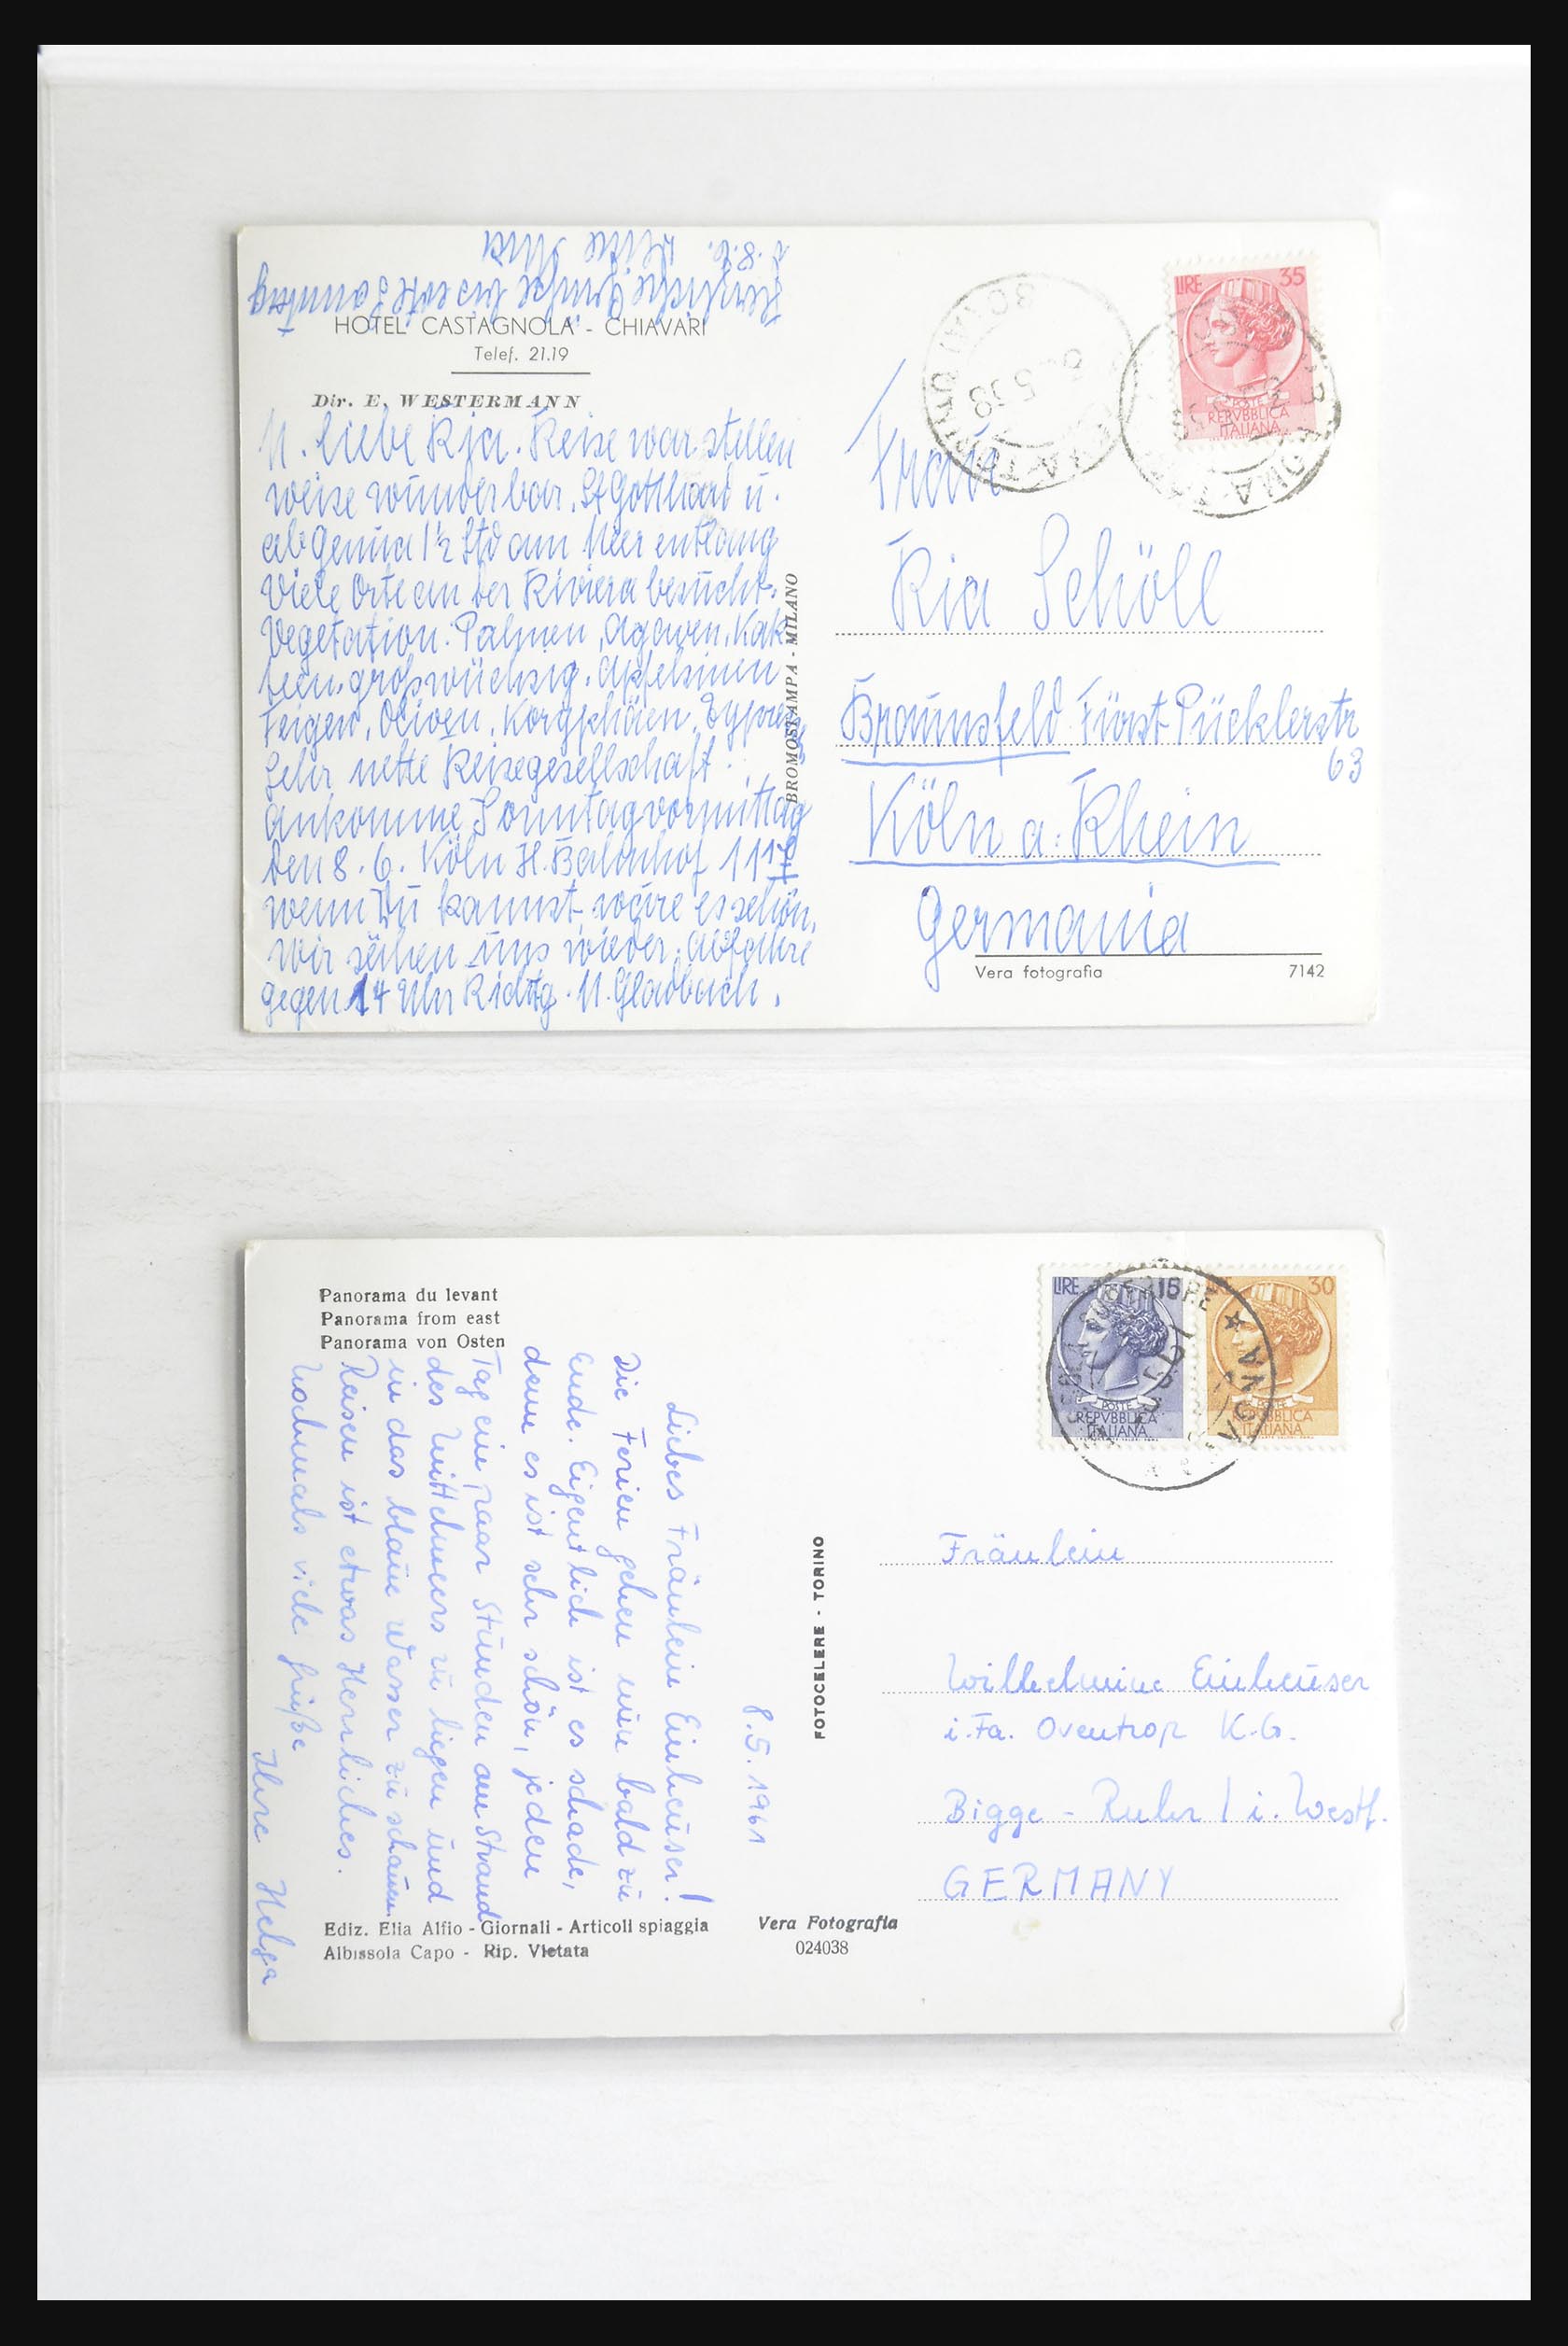 HOTEL CASTAGNOLA - CHIAVARI
Telef. 21.19
Dir. E. WESTERMANN
M. liebe Ria. Reise war stellen
weise wunderbar. St Gotthard u.
ab Genua 1½ Std am Meer entlang
viele Orte an der Riviera besucht.
Vegetation: Palmen, Agaven, Kak
teen, großwüchsig. Apfelsinen
Feigen, Oliven,
Sehr nette Reisegesellschaft.
ankomme Sonntagvormittag
den 8.6. Köln H. Bahnhof 11
wenn Du kannst, wäre es schön,
wir sähen uns wieder. Abfahre
gegen 14 Uhr Richtg. M. Gladbach.
BROMOSTAMPA - MILANO
LIRE 35
POSTE
REPVBBLICA
ITALIANA
Frau
Ria Schöll
Braunsfeld Fürst Pücklerstr
63
Köln a. Rhein
Germania
Vera fotografia 7142
Panorama du levant
Panorama from east
Panorama von Osten
8.5.1961
Liebes Fräulein Einheuser!
Die Ferien gehen nun bald zu
Ende. Eigentlich ist es schade,
denn es ist sehr schön, jeden
Tag ein paar Stunden am Strand
des Mittelmeers zu liegen und
in das blaue Wasser zu schauen.
Reisen ist etwas Herrliches.
Nochmals viele Grüße
Ihre Helga
Ediz. Elia Alfio - Giornali - Articoli spiaggia
Albissola Capo - Rip. Vietata
Vera Fotografia
024038
FOTOCELERE - TORINO
LIRE 15
POSTE
REPVBBLICA
ITALIANA
30
REPVBBLICA
ITALIANA
Fräulein
Wilhelmine Einheuser
i. Fa. Oventrop K.G.
Bigge - Ruhr / i. Westf.
GERMANY